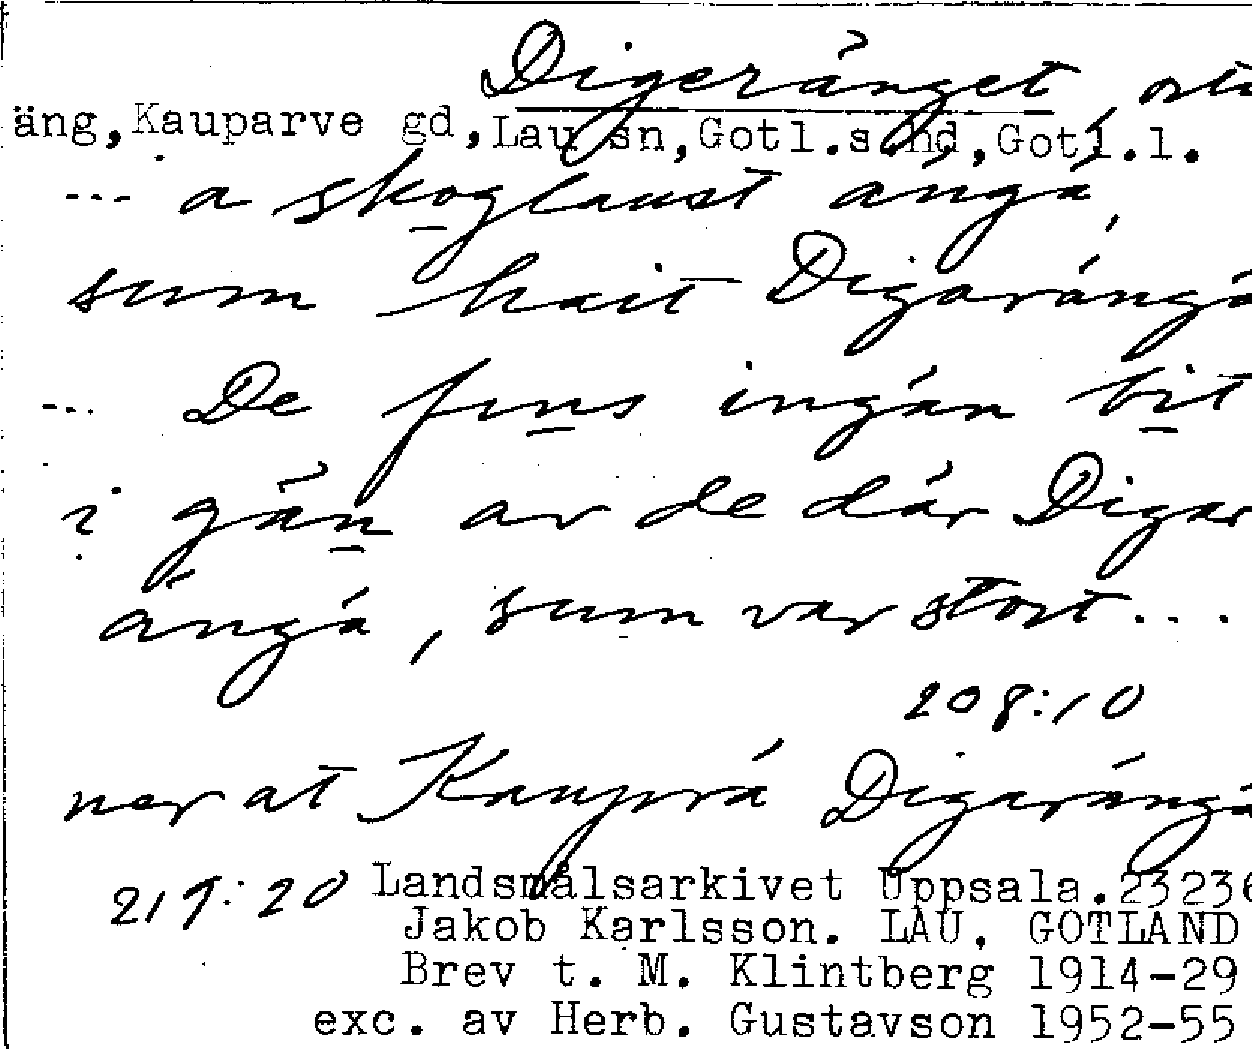 Digeränget,
äng, Kauparve gd, Lau sn, Gotl.s.hd, Gotl.l.
... a skoglaust ängá,
sum hait Digarängá
... De fins ingán bit
i gän av de där Digar
ängá, sum var stort...
208:10
ner at Kauprá Digarängá
219:20 Landsmålsarkivet Uppsala. 23236
Jakob Karlsson. LAU, GOTLAND
Brev t. M. Klintberg 1914-29
exc. av Herb. Gustavson 1952-55